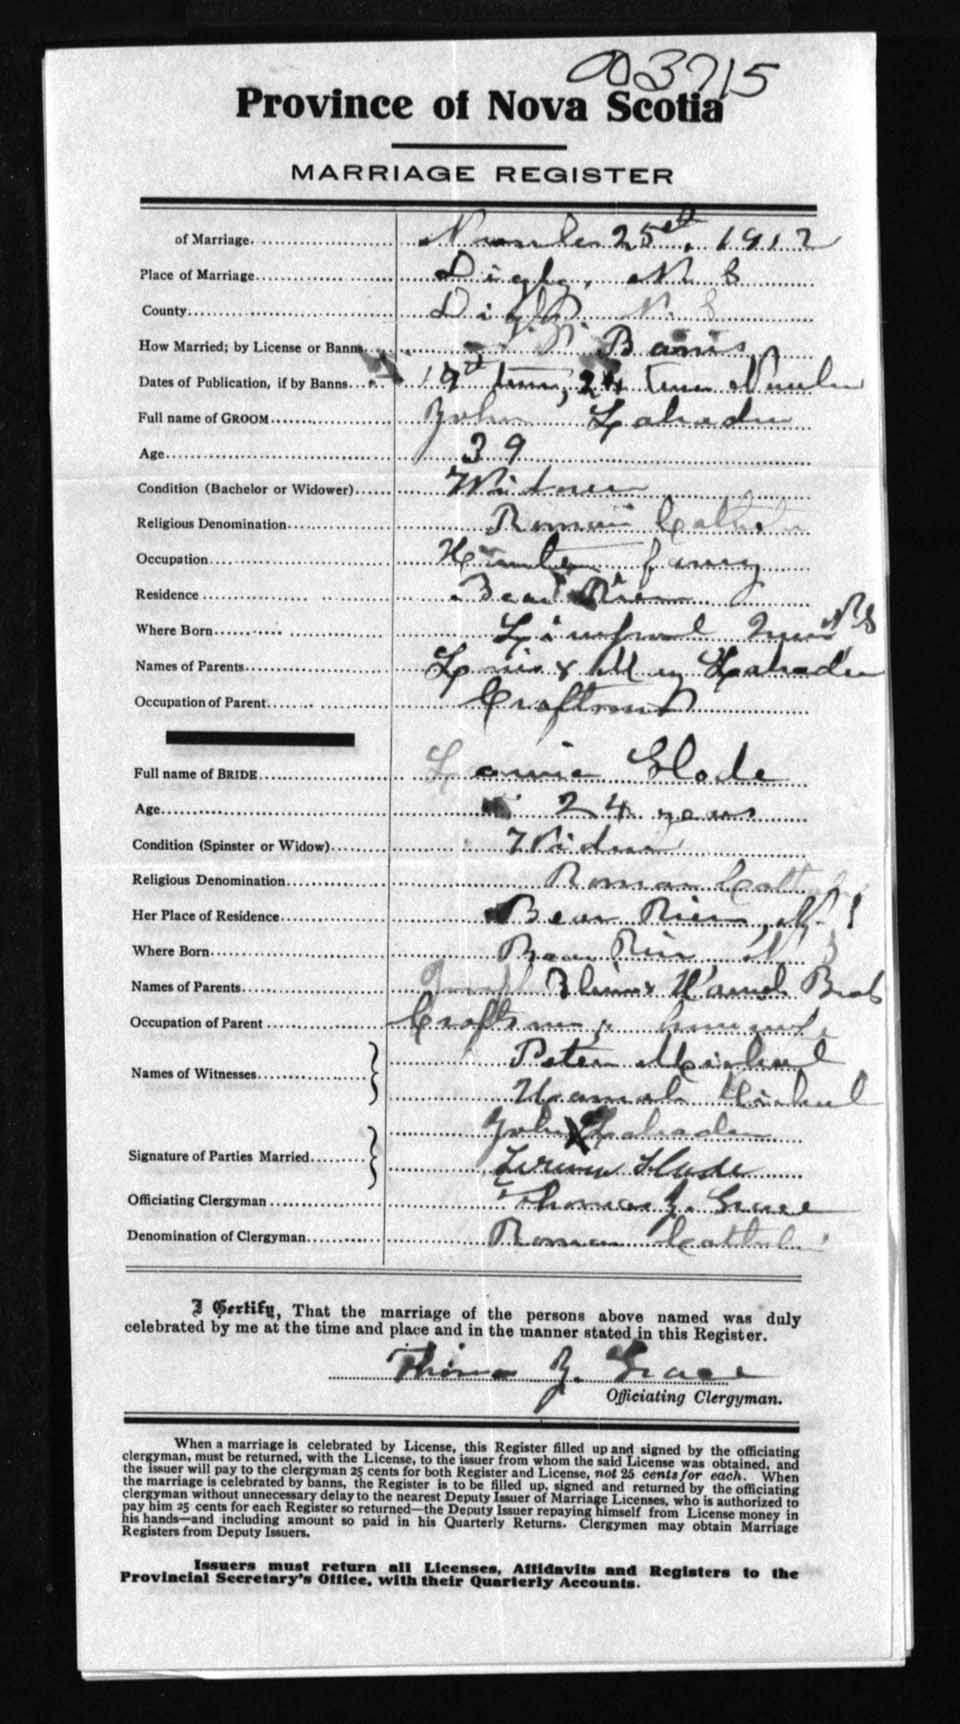 003715
Province of Nova Scotia
MARRIAGE REGISTER
of Marriage 25th, 1912
Place of Marriage Digby, N S
County Digby N. S
How Married; by License or Banns Banns
Dates of Publication, if by Banns 19th 24
Full name of GROOM John Labrador
Age 39
Condition (Bachelor or Widower) Widower
Religious Denomination Roman Catholic
Occupation
Residence Bear River
Where Born Liverpool N S
Names of Parents Louis & Labrador
Occupation of Parent Craftsman
Full name of BRIDE Glode
Age 24 years
Condition (Spinster or Widow) Widow
Religious Denomination Roman Catholic
Her Place of Residence Bear River, N. S
Where Born Bear River N S
Names of Parents
Occupation of Parent Craftsman,
Names of Witnesses Peter Michael
Hannah Michael
Signature of Parties Married John X Labrador
Glode
Officiating Clergyman Thomas J. Grace
Denomination of Clergyman Roman Catholic
I Certify, That the marriage of the persons above named was duly
celebrated by me at the time and place and in the manner stated in this Register.
Thomas J. Grace
Officiating Clergyman.
When a marriage is celebrated by License, this Register filled up and signed by the officiating
clergyman, must be returned, with the License, to the issuer from whom the said License was obtained, and
the issuer will pay to the clergyman 25 cents for both Register and License, not 25 cents for each. When
the marriage is celebrated by banns, the Register is to be filled up, signed and returned by the officiating
clergyman without unnecessary delay to the nearest Deputy Issuer of Marriage Licenses, who is authorized to
pay him 25 cents for each Register so returned—the Deputy Issuer repaying himself from License money in
his hands—and including amount so paid in his Quarterly Returns. Clergymen may obtain Marriage
Registers from Deputy Issuers.
Issuers must return all Licenses, Affidavits and Registers to the
Provincial Secretary's Office, with their Quarterly Accounts.